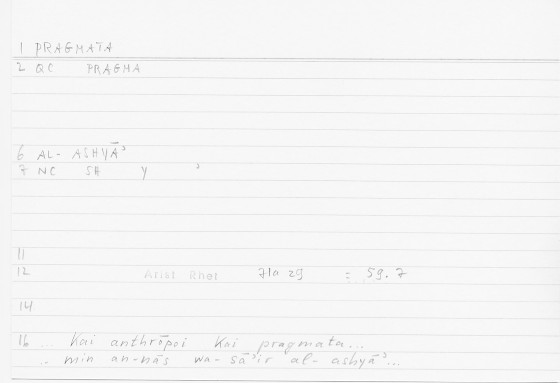 1 PRAGMATA
2 QC PRAGMA
6 AL- ASHYĀʾ
7 NC SH Y ʾ
11
12 Arist Rhet 71a 29 = 59.7
14
16 ... kai anthrōpoi kai pragmata...
.. min an-nās wa-sāʾir al-ashyāʾ...